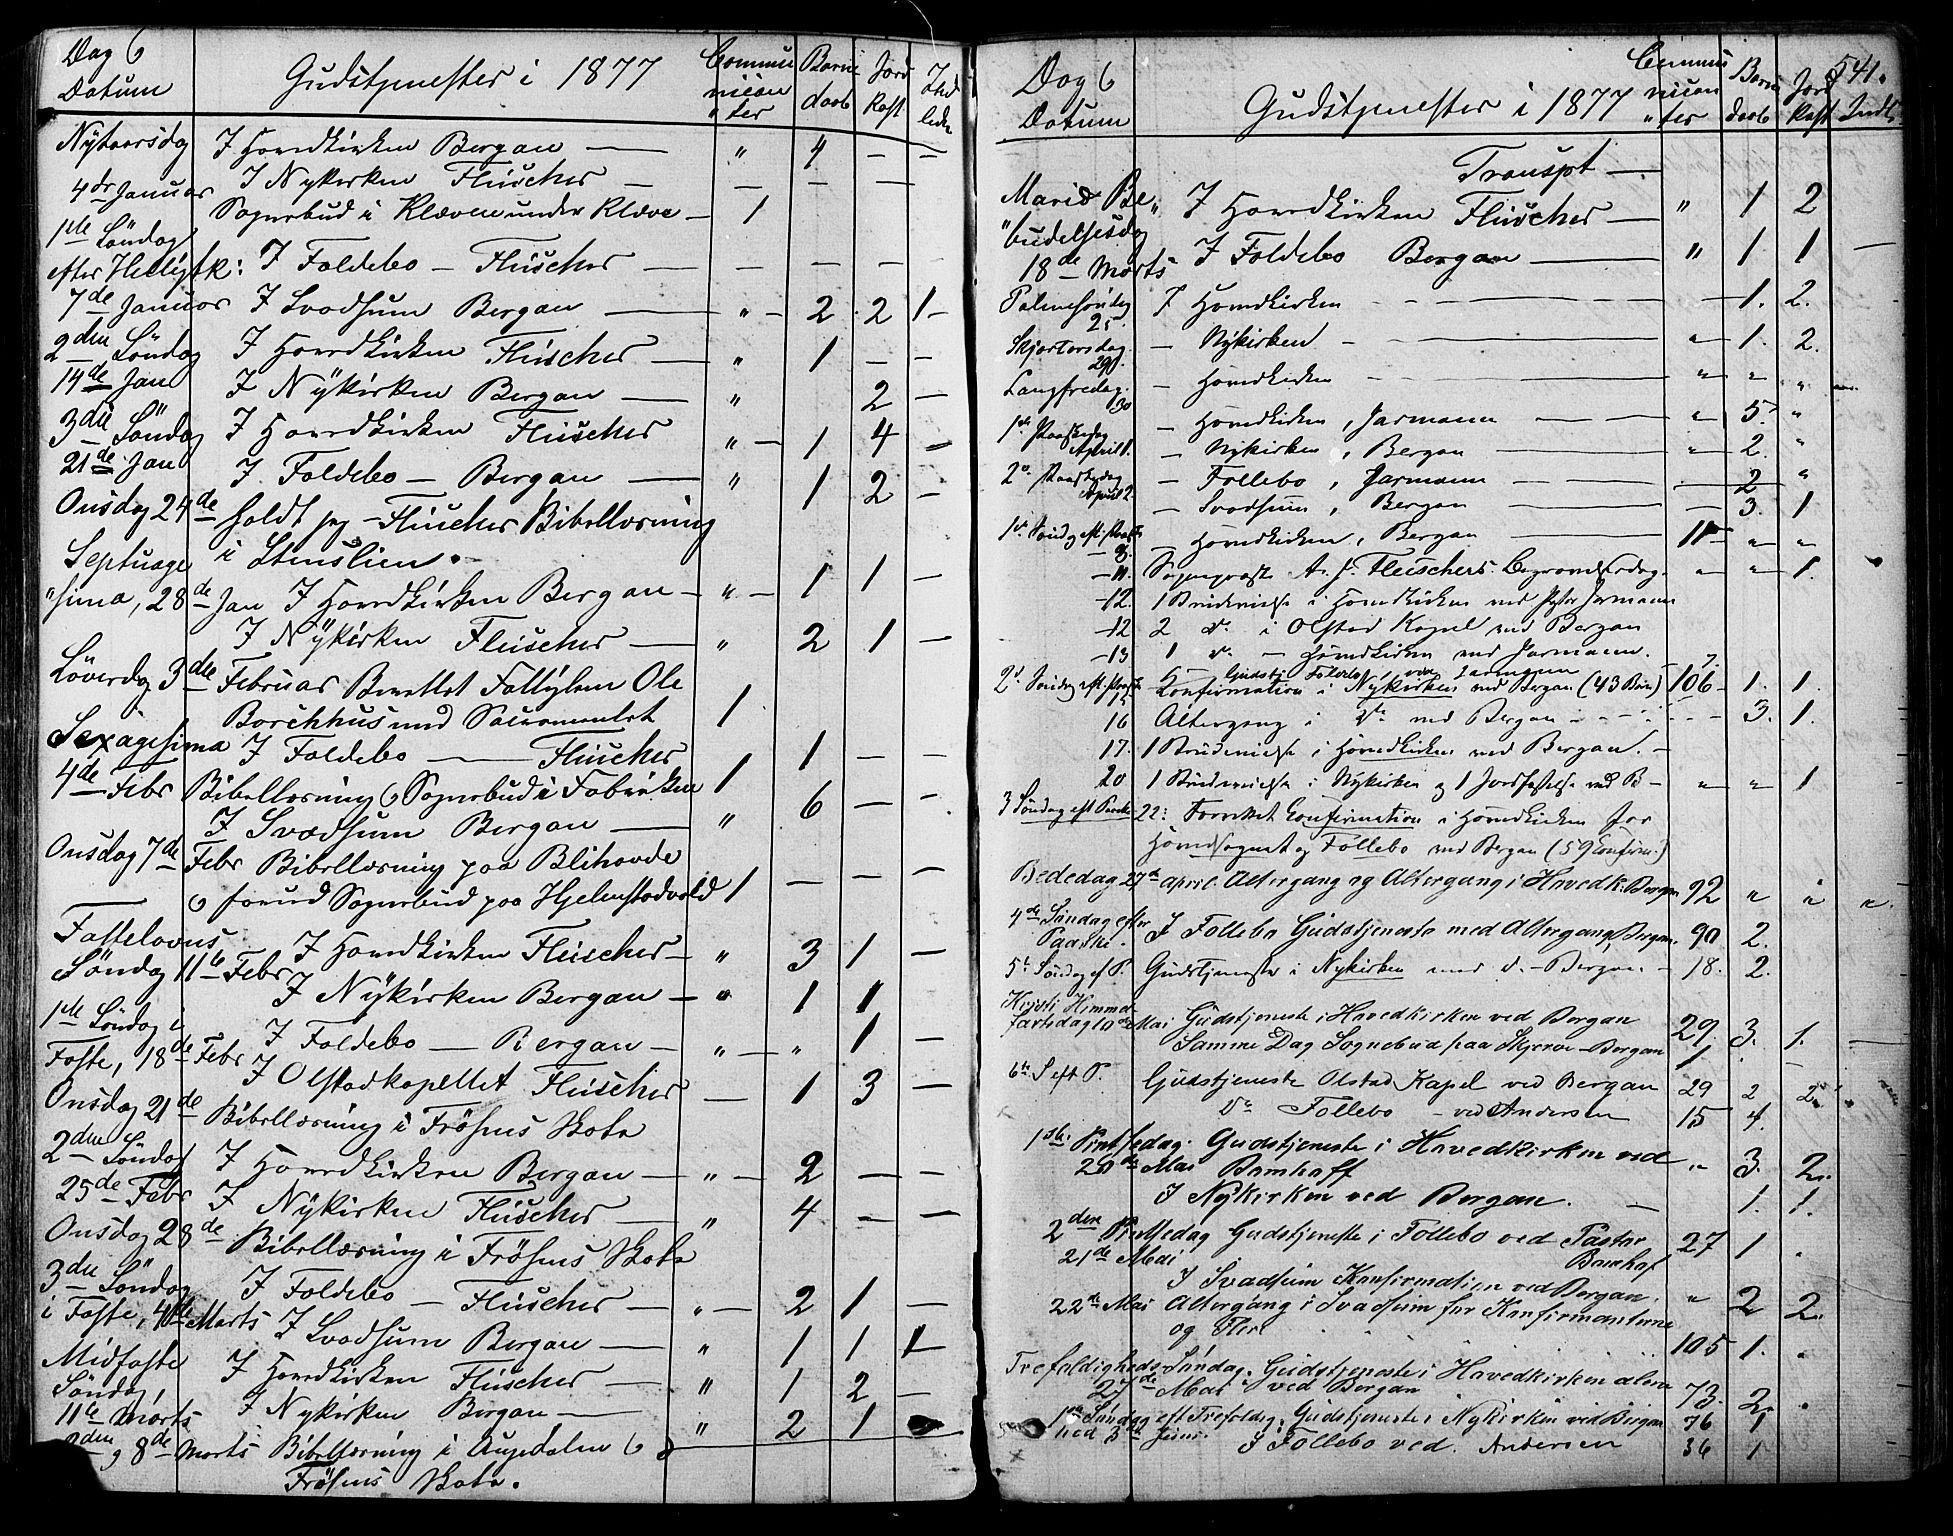 Dag &
Datum
Gudstjenester i 1877
Commu
nican
"ter
Barne
daab
Jord
kast
Ind
leder
Nytaarsdag I Hovedkirken Bergan — " 4 — —
4de Januar I Nykirken Fleischer — — — —
Sognebud i Kløven under Kløve — 1
1ste Söndag
efter Helligtk: I Foldebo — Fleischer — — — — —
7de Januar I Svadsum Bergan — " — 2 2 1 —
2den Söndag I Hovedkirken Fleischer — " 1 — —
14de Jan I Nykirken Bergan — " 2 —
3die Söndag I Hovedkirken Fleischer " — 1 4 —
21de Jan I Foldebo — Bergan — " 1 2 —
Onsdag 24de holdt jeg — Fleischer Bibellæsning
i Stenslien.
Septuage
"sima, 28de Jan I Hovedkirken Bergan — " — 1 1 —
I Nykirken Fleischer — " 2 1 —
Löverdag 3die Februar Ole
Borchhus med Sacramentet 1
Sexagesima I Foldebo — Fleischer 1 — —
4de Febr Bibellæsning & Sognebud i Fabriken 1
I Svadsum Bergan — " 6 — —
Onsdag 7de Febr Bibellæsning paa Blihovde
& forud Sognebud paa Hjelmstadvold 1 — — —
Fastelavns
Söndag 11te Febr I Hovedkirken Fleischer — " 3 1 —
I Nykirken Bergan — " 1 1
1ste Söndag i
Faste, 18de Febr I Foldebo — Bergan — " — " 1 —
I Olstadkapellet Fleischer — 1 3 —
Onsdag 21de Bibellæsning i Frösens Skole
2den Söndag I Hovedkirken Bergan — " — 2 — —
25de Febr I Nykirken Fleischer — " 4 — —
Onsdag 28de Bibellæsning i Frösens Skole
3die Söndag
i Faste, 4de Marts I Foldebo — Fleischer — " — 2 1 —
I Svadsum Bergan — " 1 1 1
Midfaste
Söndag, I Hovedkirken Fleischer — " 1 2 —
11te Marts I Nykirken Bergan — " 2 1
8de Marts Bibellæsning i &
Frösens Skole.
541.
Dag &
Datum
Gudstjenester i 1877
Commu
nican
"ter
Barne
daab
Jord
kast
Indl
Transpt —
Mariæ Be"
"budelsesdag I Hovedkirken Fleischer — " 1 2
18de Marts I Foldebo Bergan — " 1 1 —
Palmesöndag
25. I Hovedkirken — 1. 2.
Skjærtorsdag
29. — Nykirken — " 1. 2.
Langfredag
30 — Hovedkirken — " " "
1ste Paaskedag
April 1. — Hovedkirken, Jarmann — " 5. "
— Nykirken, Bergan — " 2. "
2. Paaskedag
April 2. — Follebo, Jarmann — 2 "
— Svadsum, Bergan — 3. 1
1. Söndag eft. Paaske
— 8. — Hovedkirken, Bergan — 11 — " "
— 11. Sogneprest A. J. Fleischers Begravelsesdag. " " 1.
— 12. 1 Brudevielse i Hovedkirken ved Pastor Jarmann
— 12 2 do. i Olstad Kapel ved Bergan
— 13 1 do. — Hovedkirken ved Jarmann.
Gudstj Follebo, ved Jarmann 7
2. Söndag eft. Paaske
15 Konfirmation i Nykirken ved Bergan (43 Börn) 106 — 1. 1.
16 Altergang i do ved Bergan — 3. 1.
17. 1 Brudevielse i Hovedkirken ved Bergan. —
20 1 Brudevielse i Nykirken og 1 Jordfæstelse ved B — " " 1
3 Söndag eft Paaske 22: Forrettet Confirmation i Hovedkirken for
Hovedsognet og Follebo ved Bergan (59 Confirm.)
Bededag 27de April. Altergang og Altergang i Hovedk. Bergan 92 " " "
4de Söndag efter
Paaske. I Follebo Gudstjeneste med Altergang Bergan. 90 2.
5te Söndag ef P. Gudstjeneste i Nykirken med d. — Bergan — 18. 2.
Kristi Himmel
fartsdag 10de Mai Gudstjeneste i Hovedkirken ved Bergan 29. 3. 1. —
Samme Dag Sognebud paa Skjerve Bergan 1 —
6te S eft P. Gudstjeneste Olstad Kapel ved Bergan 29 2 2.
Do Follebo — ved Andersen 15 4.
1ste Pintsedag. Gudstjeneste i Hovedkirken ved
20de Mai Bomhoff " 3. 2.
I Nykirken ved Bergan. — 1. 1.
2den Pintsedag Gudstjeneste i Follebo ved Pastor
21de Mai Bomhof 27 1 .
I Svadsum Konfirmation ved Bergan. " 2 2.
22de Mai Altergang i Svadsum for Konfirmanterne
og Flere 105 1. .
Trefoldigheds Söndag. Gudstjeneste i Hovedkirken alene
27de Mai ved Bergan 73. 2. .
1ste Söndag eft Trefoldig. Gudstjeneste i Nykirken ved Bergan 76 1
3de Juni. I Follebo ved. Andersen 36 1